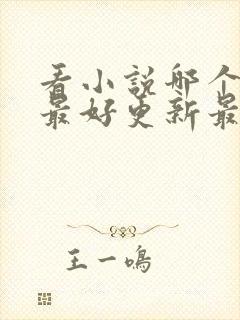 看小説哪个
最好更新最
王一鳴